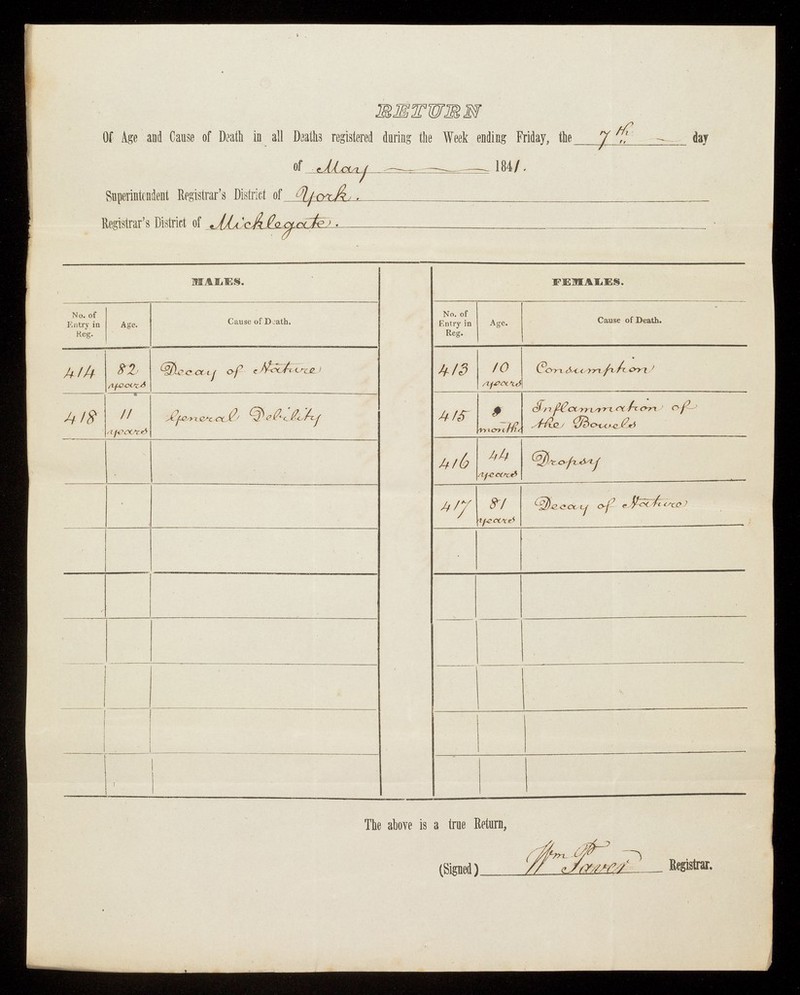 RETURN
Of Age and Cause of Death in all Deaths registered during the Week ending Friday, the 7th day
of May 1841.
Superintendent Registrar's District of York.
Registrar's District of Micklegate.
MALES.
No. of Entry in Reg. Age. Cause of Death.
414 82 years Decay of Nature
418 11 years General Debility
FEMALES.
No. of Entry in Reg. Age. Cause of Death.
413 10 years Consumption
415 months Inflammation of the Bowels
416 44 years Dropsy
417 81 years Decay of Nature
The above is a true Return,
(Signed) Wm Paver Registrar.